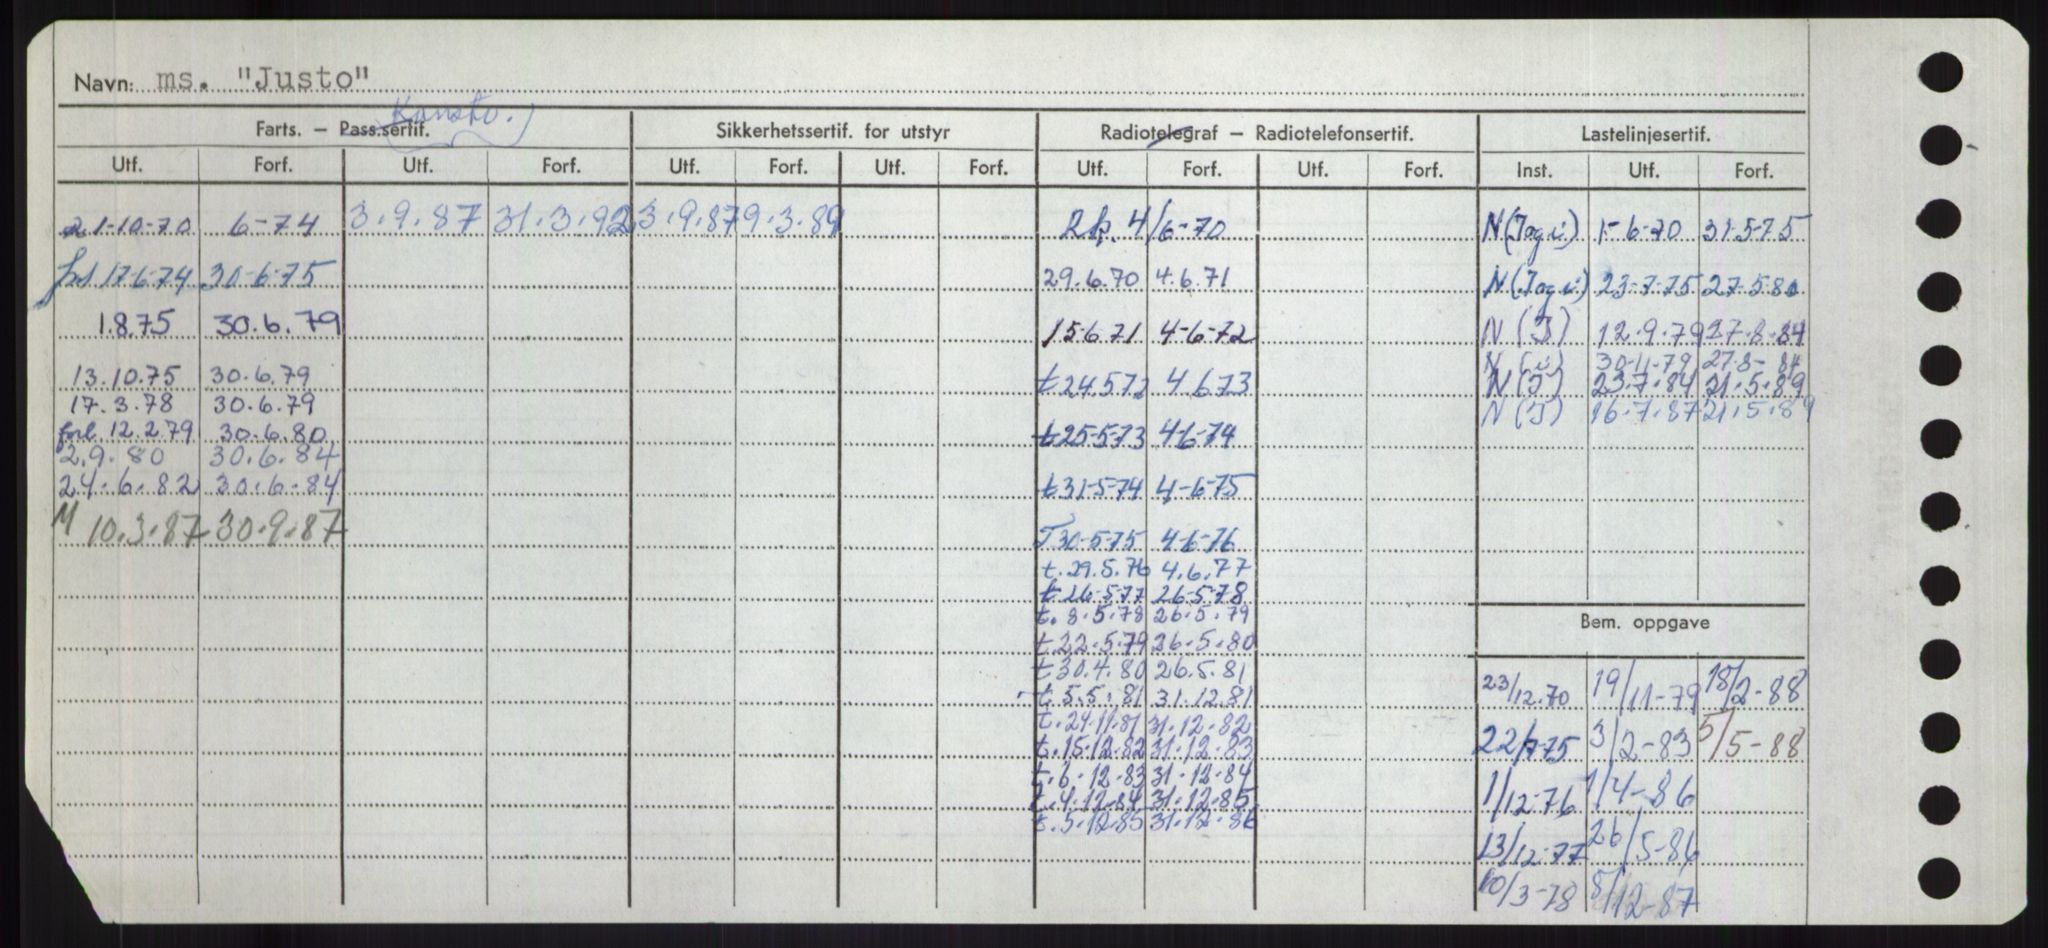 Navn: ms. "Justo"
Konstr.
Farts. – Pass.sertif. Sikkerhetssertif. for utstyr Radiotelegraf – Radiotelefonsertif. Lastelinjesertif.
Utf. Forf. Utf. Forf. Utf. Forf. Utf. Forf. Utf. Forf. Utf. Forf. Inst. Utf. Forf.
21-10-70 6-74 3.9.87 31.3.92 3.9.87 9.3.89 4/6-70 N(Tog i) 1-6-70 31-5-75
17-6-74 30-6-75 29.6.70 4.6.71 N(Tog i) 23-7-75 27-5-80
1.8.75 30.6.79 15-6-71 4-6-72 N (J) 12.9.79 27.8.84
N (i) 30-11-79 27-8-84
13.10.75 30.6.79 t 24.5.72 4.6.73 N (J) 23.7.84 21.5.89
17.3.78 30.6.79 N (J) 16.7.87 21.5.89
forl 12.2.79 30.6.80 t 25-5-73 4-6-74
2.9.80 30.6.84
24.6.82 30.6.84 t 31-5-74 4-6-75
M 10.3.87 30.9.87 T 30-5-75 4-6-76
t. 29.5.76 4.6.77
t 26-5-77 26-5-78
t. 8.5.78 26.5.79
t 22.5.79 26.5.80
Bem. oppgave
t 30.4.80 26.5.81
t 5.5.81 31.12.81 23/12.70 19/11-79 18/2-88
t. 24.11.81 31.12.82
t. 15.12.82 31.12.83 22/7-75 3/2-83 5/5-88
t. 6.12.83 31.12.84
t. 4.12.84 31.12.85 1/12-76 1/4-86
t. 5.12.85 31.12.86
13/12-77 26/5-86
10/3-78 8/12-87